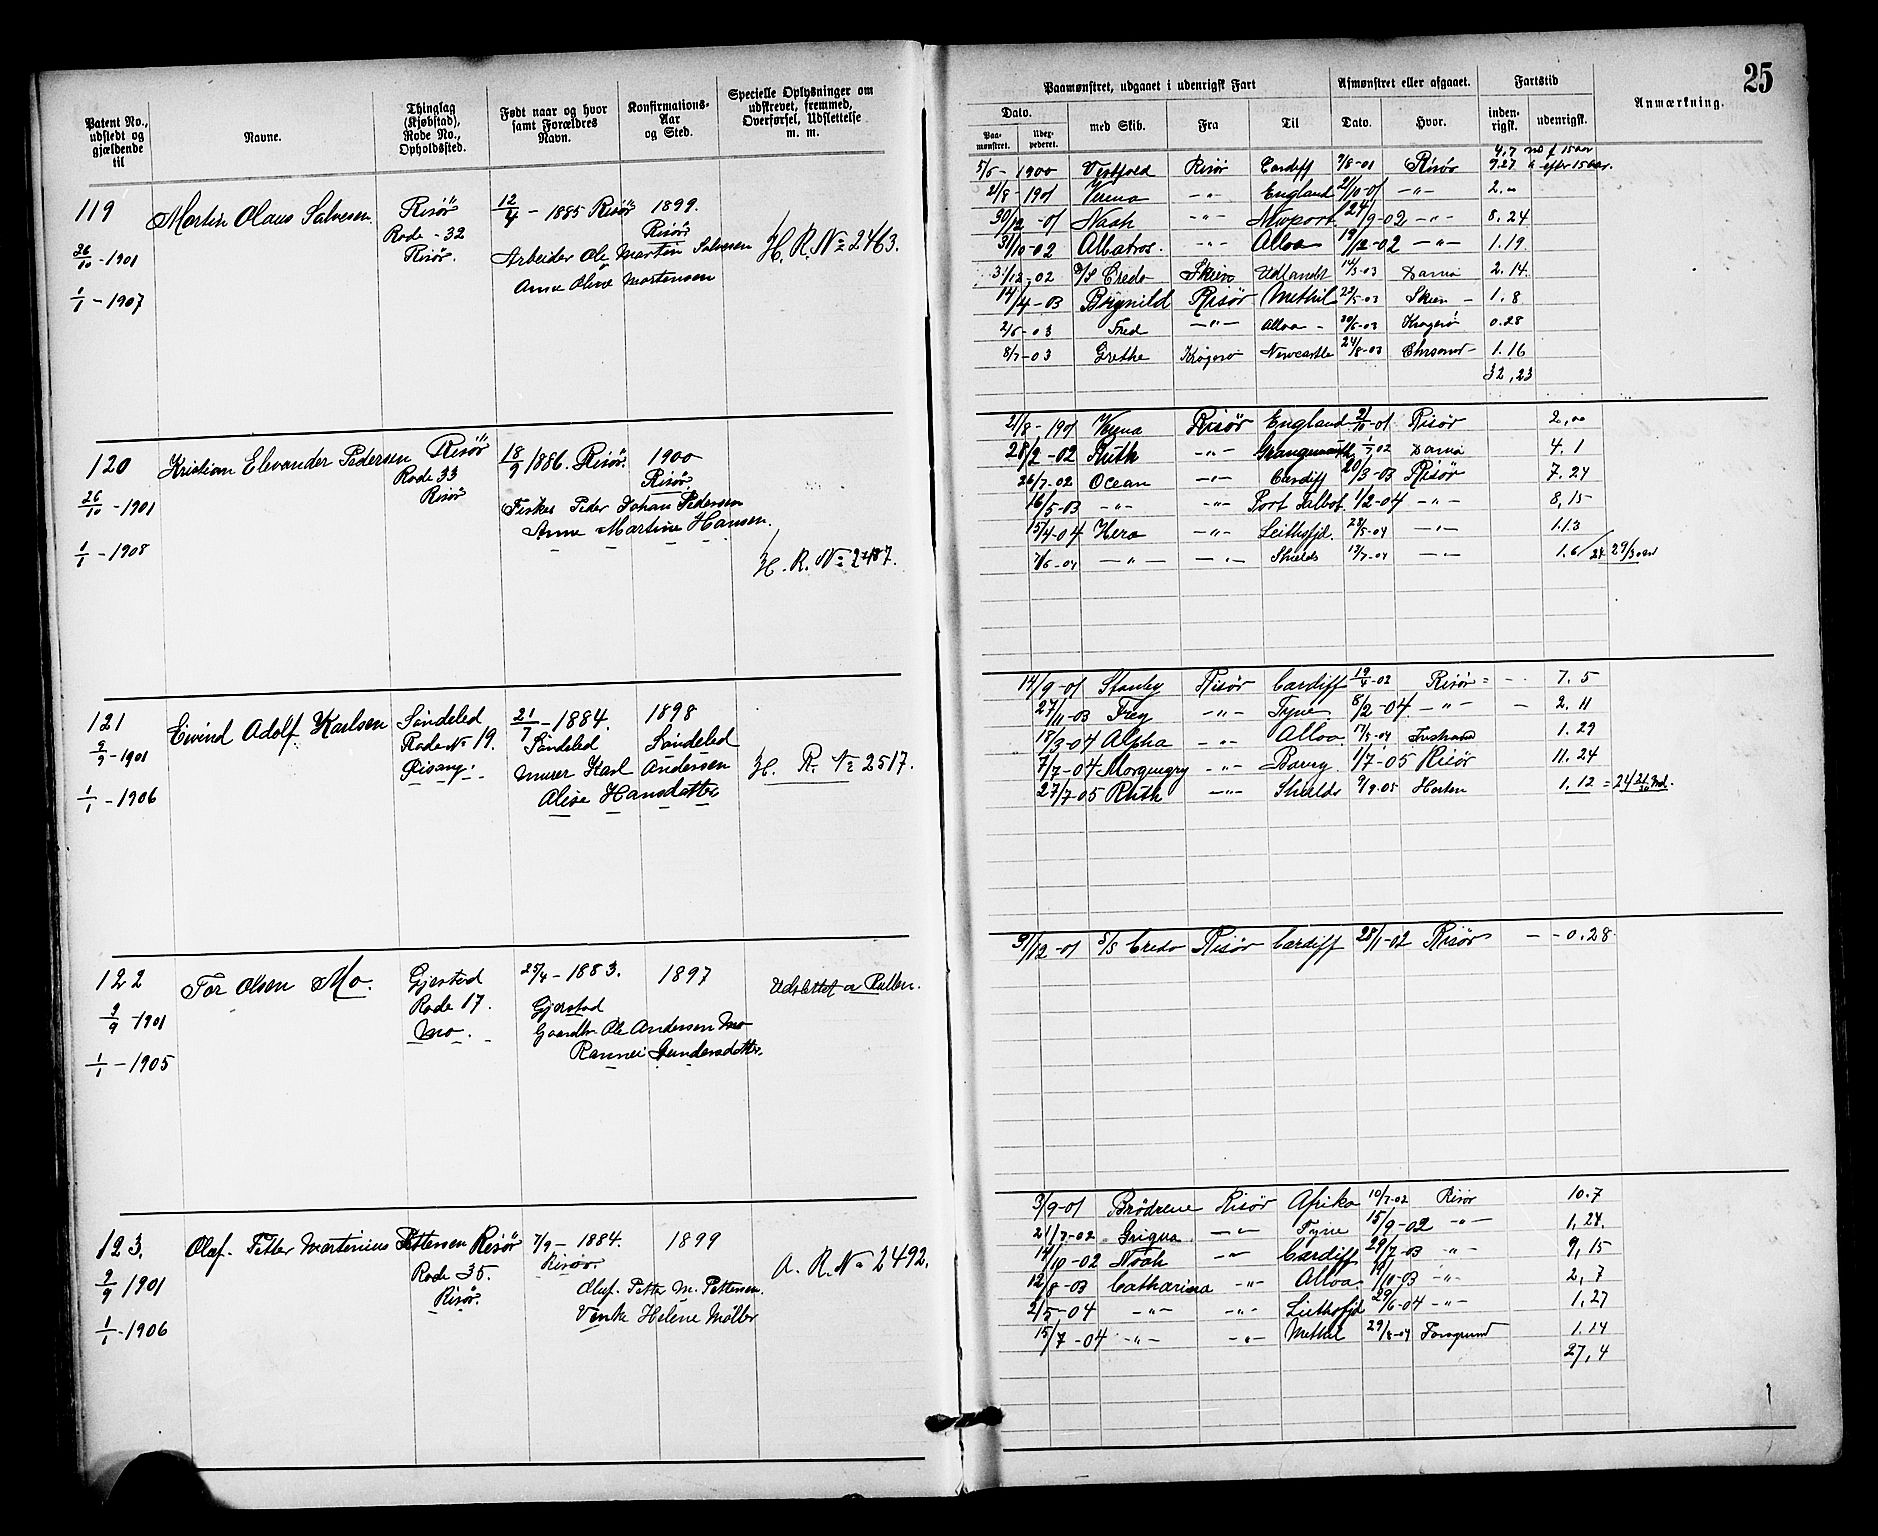 25
Patent No., udstedt og gjældende til
Navne.
Thinglag (Kjøbstad), Rode No., Opholdssted.
Født naar og hvor samt Forældres Navn.
Konfirmations-Aar og Sted.
Specielle Oplysninger om udskrevet, fremmed, Overførsel, Udslettelse m. m.
Paamønstret, udgaaet i udenrigsk Fart
Dato.
Paa-mønstret.
Uder-pederet.
med Skib.
Fra
Til
Afmønstret eller afgaaet.
Dato.
Hvor.
Fartstid
inden-rigsk.
udenrigsk.
Anmærkning.
119
26/10 - 1901
1/1 - 1907
Martin Olaus Salvesen
Risør
Rode - 32
Risør.
12/4 - 1885 Risør
1899.
Risør
Arbeider Ole Martin Salvesen
Anne Oline Mortensen
H. R. № 2463.
5/5 - 1900 Vestfold Risør Cardiff 9/8-01 Risør 9.27 efter 15 aar.
21/8 - 1901 Verena -"- England 21/10-01 -"- 2.00
30/12 - 01 Noah -"- Newport 24/9-02 -"- 8.24
31/10-02 Albatros -"- Alloa 19/12-02 -"- 1.19.
31/12-02 S/S Credo Skien Udlandet 14/3-03 2.14.
14/4-03 Bøgnild Risør Methil 22/5-03 Skien - 1.8
2/6-03 Fred -"- Alloa - 30/6-03 Kragerø 0.28
8/7-03 Grethe Kragerø Newcastle 24/8-03 Chrsand 1.16
32,23
120
26/10 - 1901
1/1 - 1908
Kristian Elevander Pedersen
Risør
Rode 33
Risør
18/9 1886. Risør.
1900
Risør
Fisker Peder Johan Pedersen
Anne Martine Hansen.
H. R. № 2487.
21/8 - 1901 Verena Risør England 21/10-01 Risør 2,00
28/2-02 Ruth -"- Grangemouth 1/7-02 4.1
26/7-02 Ocean -"- Cardiff 20/3-03 Risør 7.24
16/5-03 -"- -"- Port Talbot 1/2-04 -"- 8,15
15/4-04 Hero -"- Leithsfjd. 28/5-04 -"- 1.13
7/6-04 -"- -"- Shields 13/7-04 -"- 1.6/24 29/30
121
9/9 - 1901
1/1 - 1906
Eivind Adolf Karlsen
Søndeled
Rode № 19.
Risøng.
21/7 - 1884.
Søndeled
1898
Søndeled
Murer Karl Andersen
Alise Hansdatter
H. R. № 2517.
14/9-01 Stanley Risør Cardiff 19/4-02 Risør - 7.5
27/11-03 Frey -"- Tyne 8/2-04. -"- - 2.11
18/3-04 Alpha -"- Alloa 17/5-04 1.29
7/7-04 -"- 1/7-05 Risør 11.24
27/7-05 Ruth -"- Shields 9/9-05 Horten 1.12 = 24 21/30 Md.
122
9/9 - 1901
1/1 - 1905
Tor Olsen Mo.
Gjerstad
Rode 17.
Mo.
25/4 - 1883.
Gjerstad
1897
Gaardbr. Ole Andersen Mo
Rannei Gundersdatter.
Udslettet a Rullen.
31/12-01 S/S Credo Risør Cardiff 28/1-02 Risør - - 0.28
123.
9/9 1901
1/1 - 1906
Olaf. Petter Martinius Pettersen
Risør
Rode 35.
Risør.
7/9 - 1884.
Risør.
1899
Oluf. Petter M. Pettersen.
Vinke Helene Møller
A. R. № 2492.
3/9-01 Brødrene Risør Afrika 10/7-02 Risør 10.7
21/7-02 Griqua -"- Tyne 15/9-02 -"- 1,24.
14/10-02 Noah -"- Cardiff 29/7-03 -"- 9,15
12/8-03 Catharina -"- Alloa 19/10-03 -"- 2,7
2/5-04 -"- -"- Leithsfjd 29/6-04 -"- 1,27
15/7-04 -"- -"- Methil 29/8-04 Porsgrund 1.14
27,4